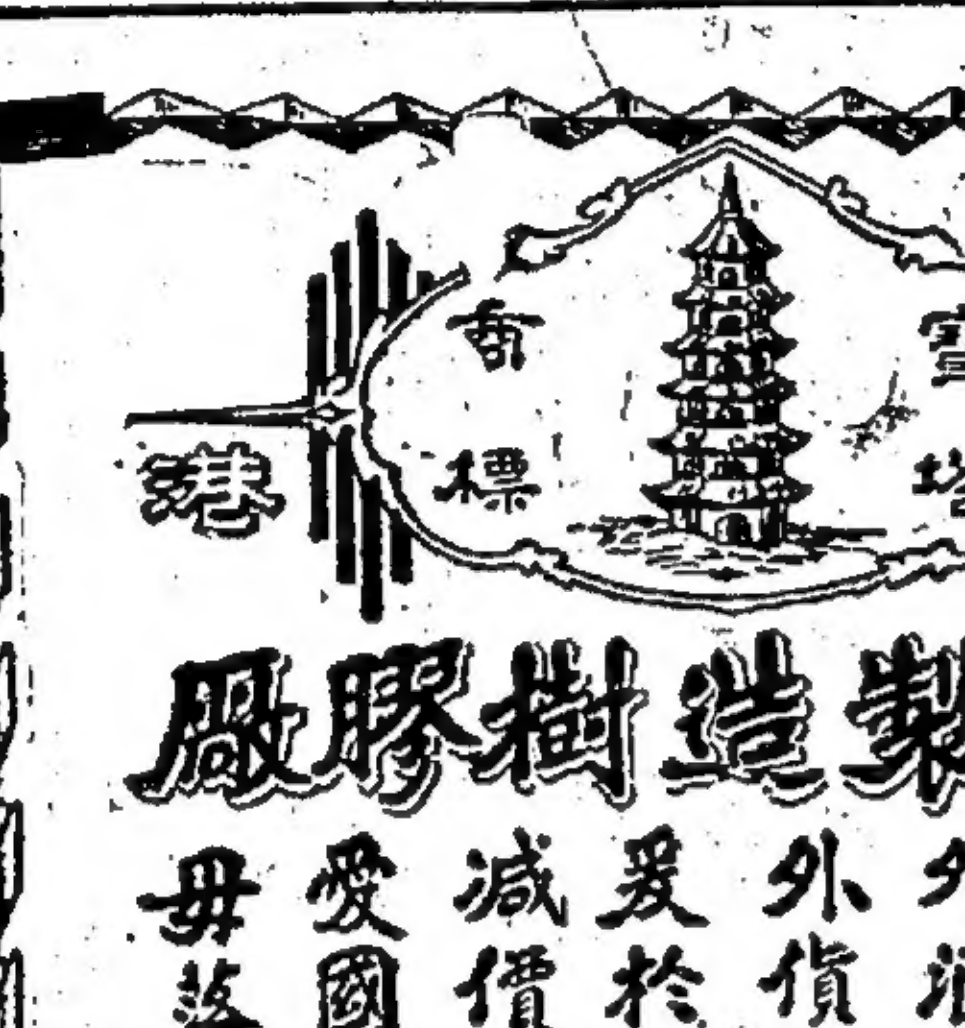 寶塔
商標
港
製造樹膠廠
外貨
爰於
減價
愛國
毋落